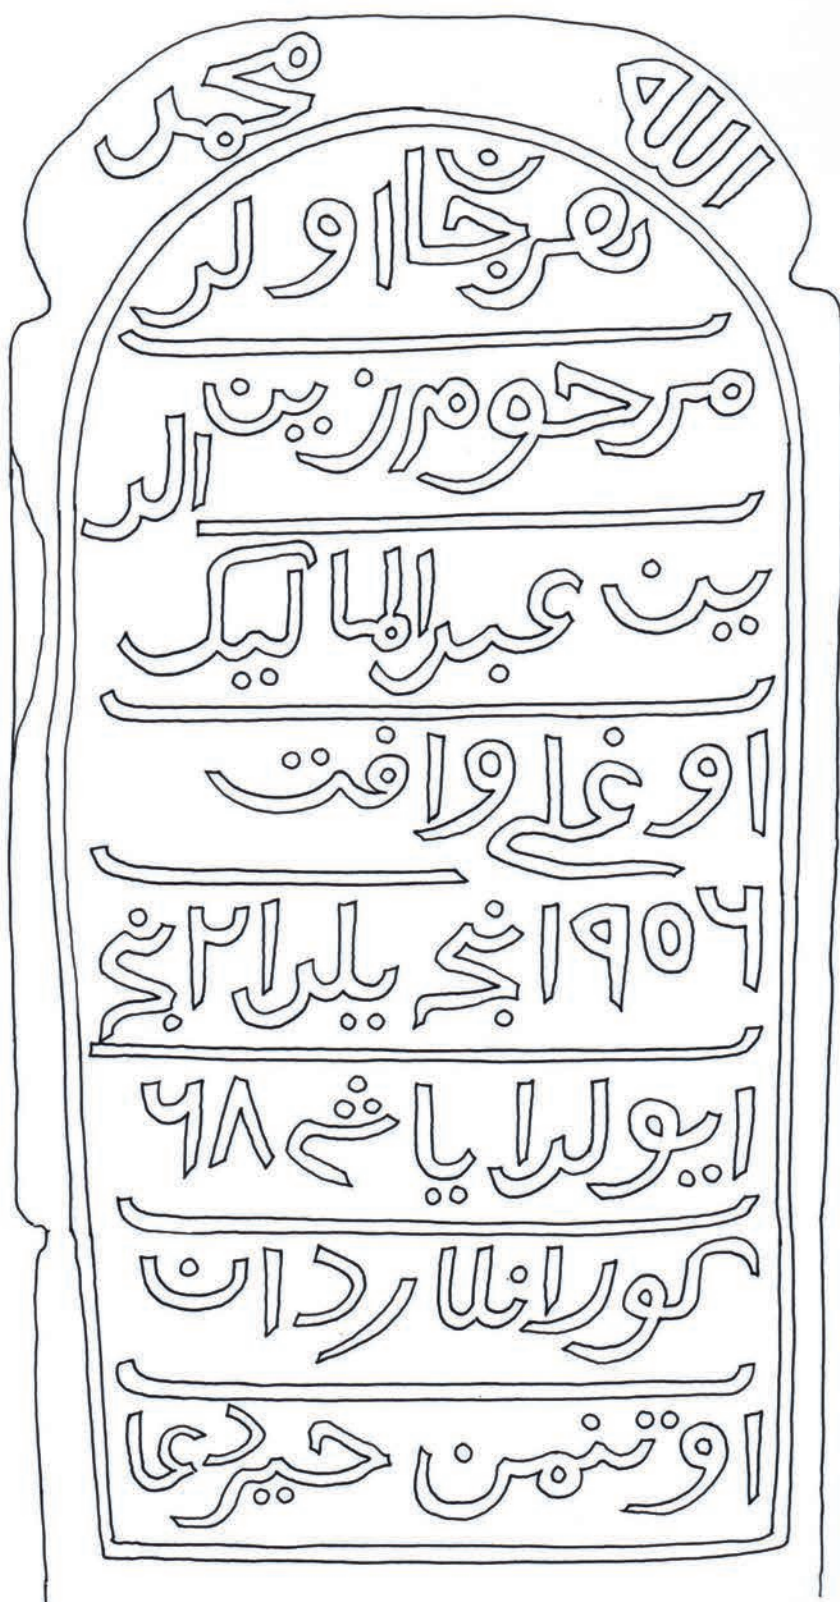 الله محمد
هر جان اولر
مرحوم زين الد
ين عبد الماليك
اوغلى وافت
١٩٥٦ نجى يلدا ٢ نجى
ايولدا ياشى ٦٨
كورانلاردان
اوتنمن حير دعا